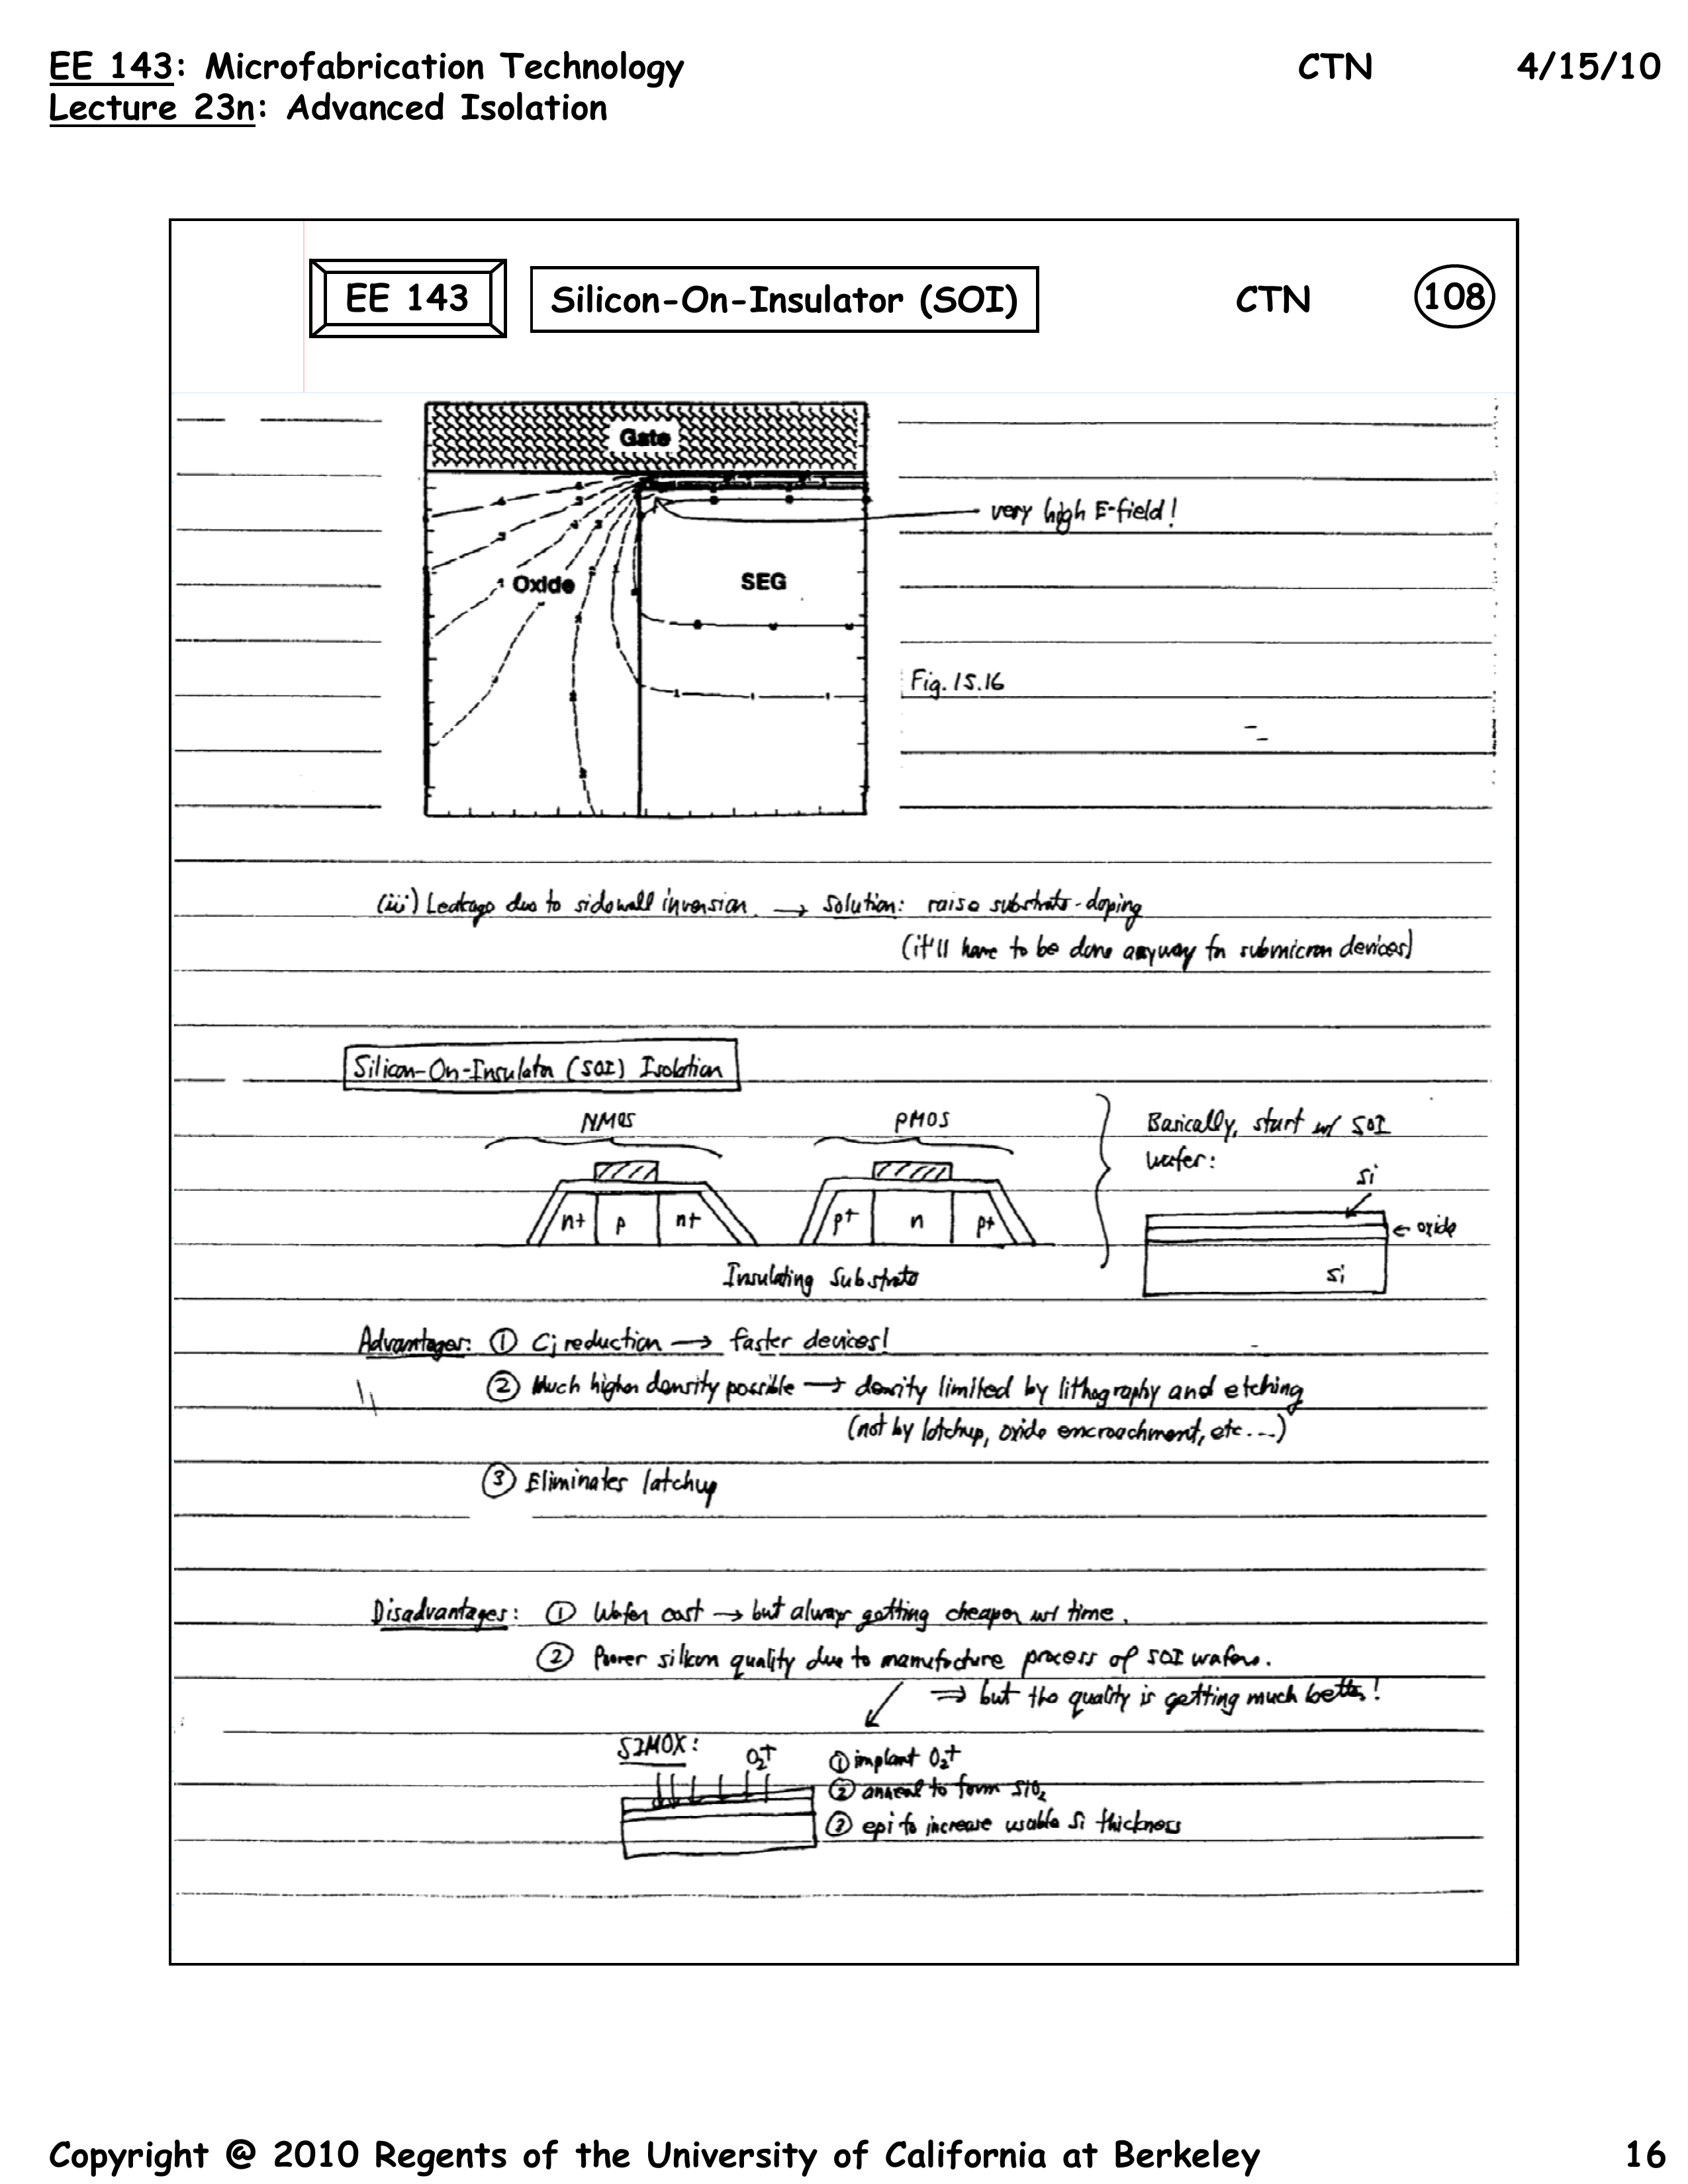 EE 143: Microfabrication Technology CTN 4/15/10
Lecture 23n: Advanced Isolation
EE 143 Silicon-On-Insulator (SOI) CTN 108
Gate
very high E-field!
Oxide SEG
Fig. 15.16
(iii) Leakage due to sidewall inversion → Solution: raise substrate-doping
(it'll have to be done anyway for submicron devices)
Silicon-On-Insulator (SOI) Isolation
NMOS PMOS Basically, start w/ SOI
wafer:
Si
n+ p n+ p+ n p+ ← oxide
Insulating Substrate Si
Advantages: ① Cj reduction → faster devices!
② Much higher density possible → density limited by lithography and etching
(not by latchup, oxide encroachment, etc...)
③ Eliminates latchup
Disadvantages: ① Wafer cost → but always getting cheaper w/ time.
② Poorer silicon quality due to manufacture process of SOI wafers.
⇒ but the quality is getting much better!
SIMOX: O₂+ ① implant O₂+
② anneal to form SiO₂
③ epi to increase usable Si thickness
Copyright @ 2010 Regents of the University of California at Berkeley 16